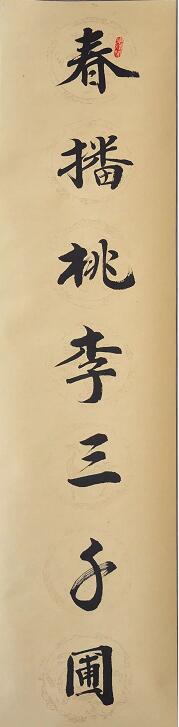 春播桃李三千圃